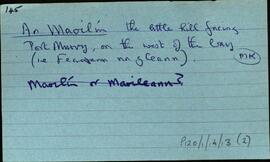 145
An Maoilín the little hill facing
Port Murvy, on the west of the bay
(ie Fearann na gCeann). MK
Maoilín or Maoileann?
P120/1/4/3 (2)